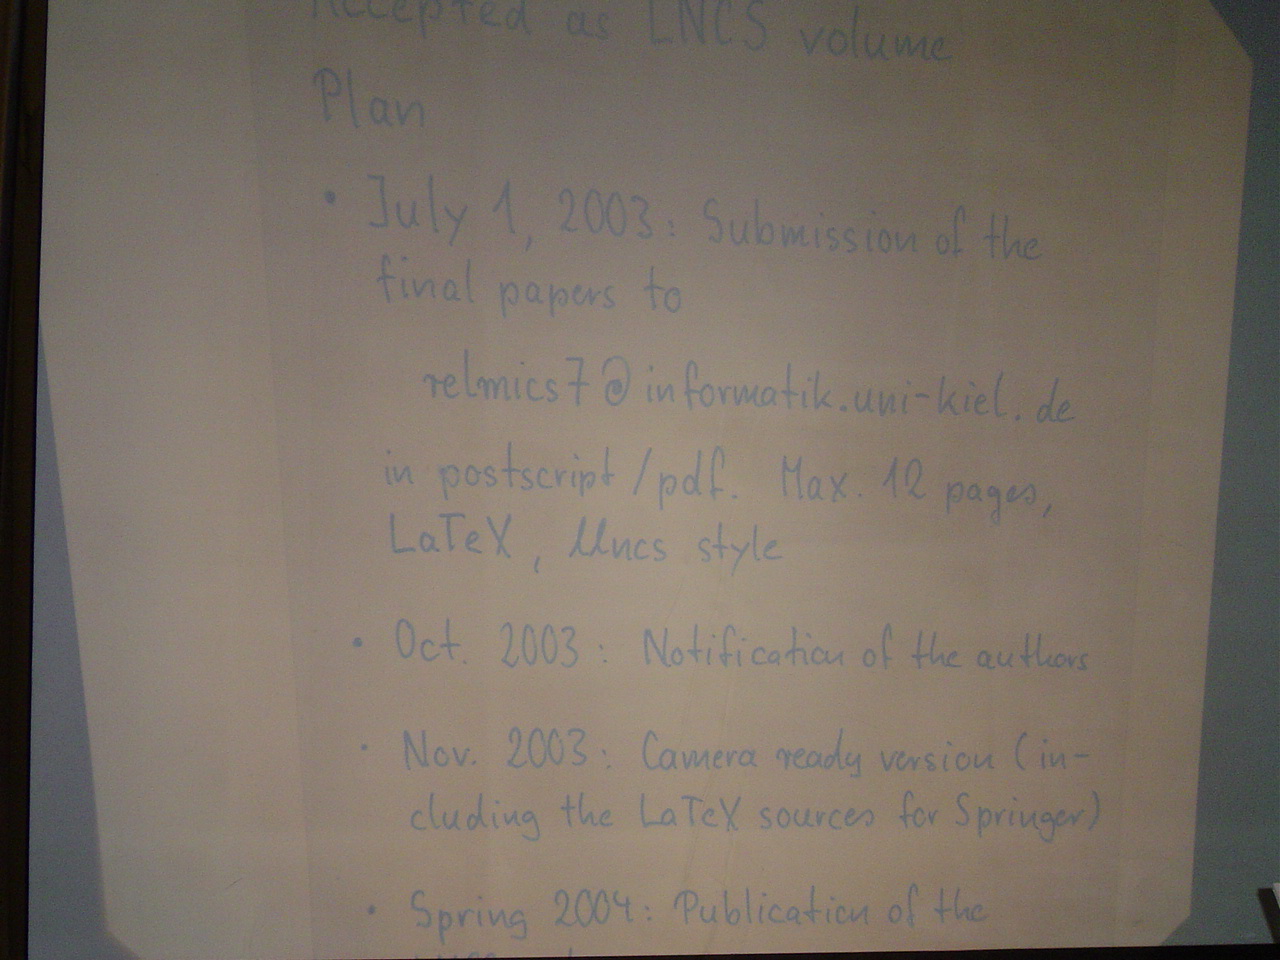 Accepted as LNCS volume
Plan
• July 1, 2003: Submission of the
final papers to
relmics7@informatik.uni-kiel.de
in postscript/pdf. Max. 12 pages,
LaTeX, llncs style
• Oct. 2003: Notification of the authors
• Nov. 2003: Camera ready version (in-
cluding the LaTeX sources for Springer)
• Spring 2004: Publication of the